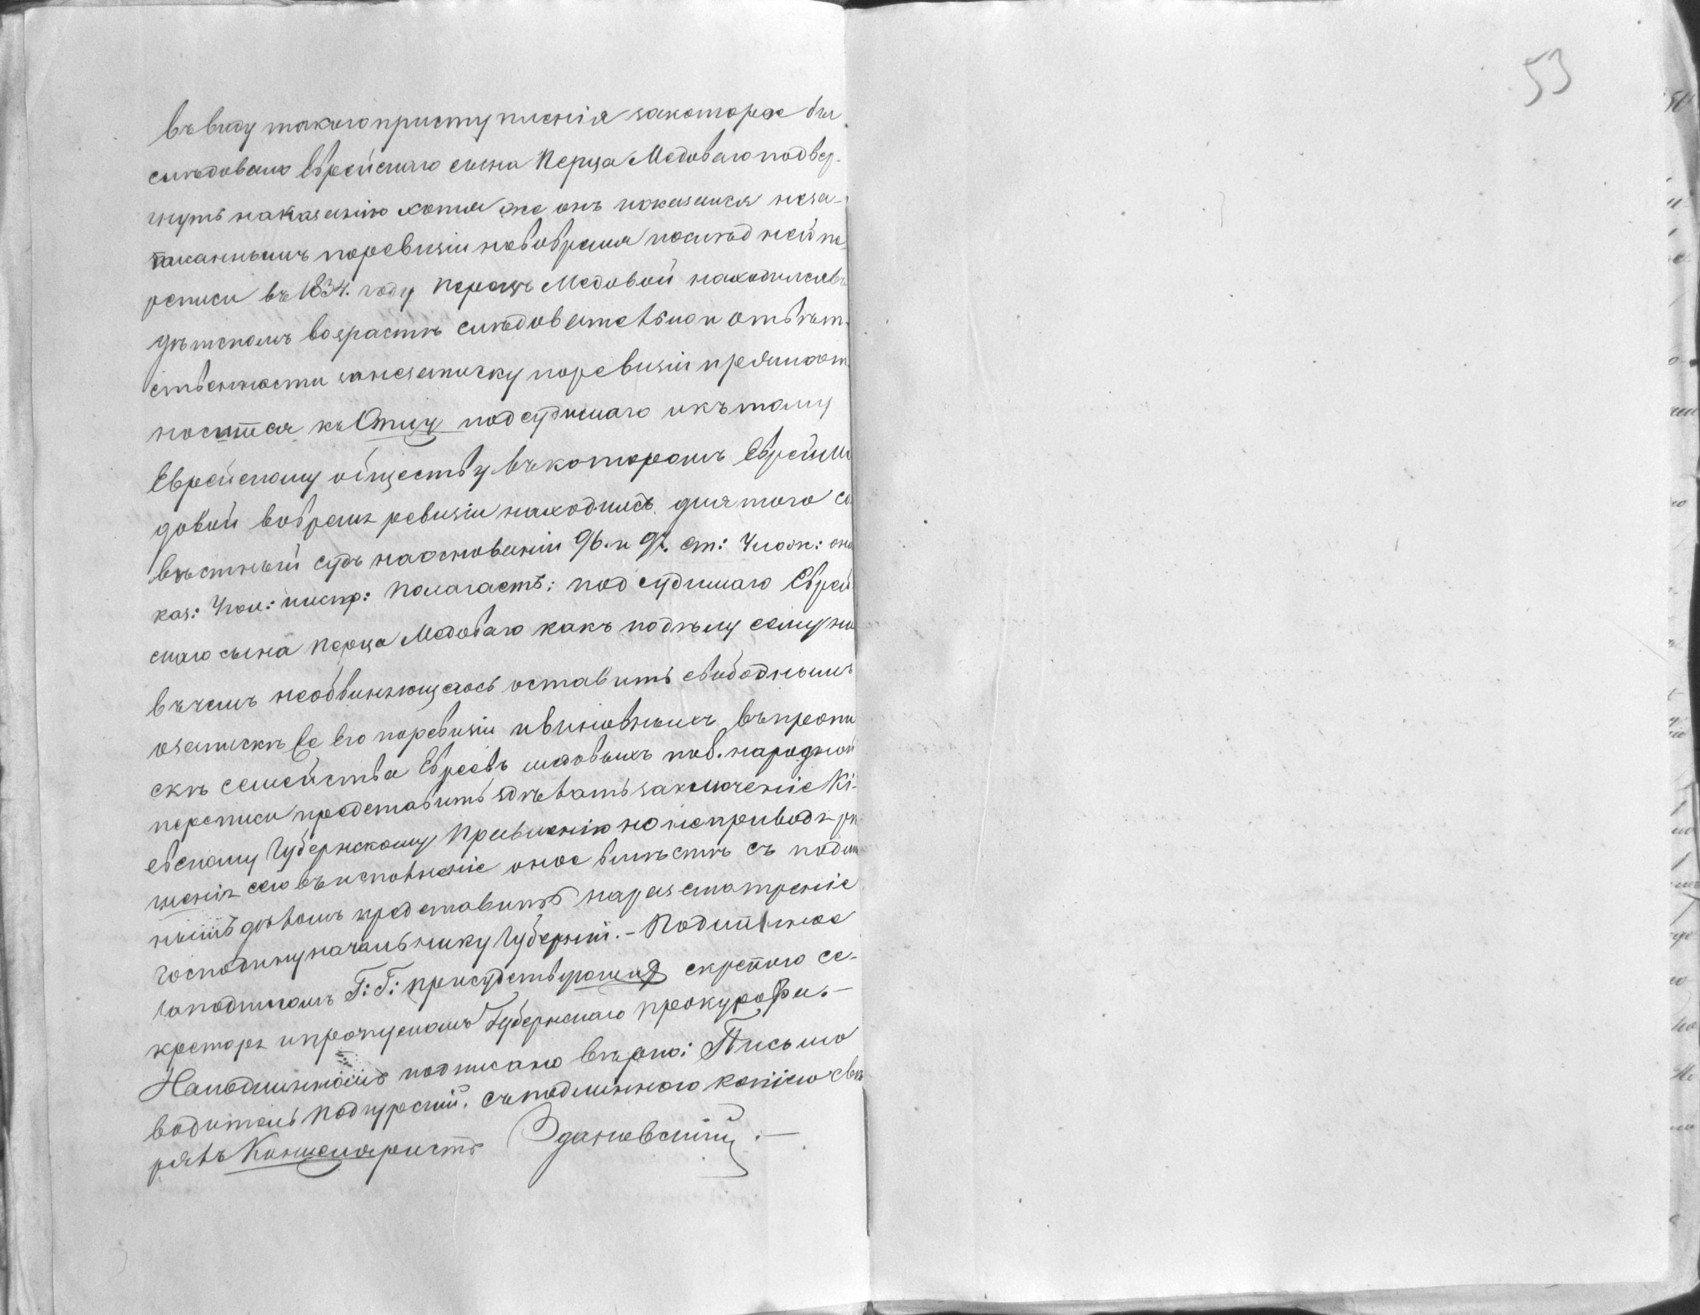 53
въ виду такого приступленія за которое бы
слѣдовало Еврейскаго сына Перца Медоваго подвер-
гнуть наказанію хотя же онъ показался неза-
писаннымъ по ревизіи но во время послѣдней пе
реписи въ 1834. году Перецъ Медовой находился въ
дѣтскомъ возрастѣ слѣдовательно и отвѣт-
ственности за незаписку по ревизіи прямо от
носится къ Отцу подсудимаго и къ тому
Еврейскому обществу въ которомъ Еврей Ме
довой во время ревизіи находились для того со
вѣстный судъ на основаніи 96. и 97. ст: Улож: о на
каз: Угол: и испр: Полагаетъ: подсудимаго Еврей
скаго сына Перца Медоваго какъ по дѣлу сему ни
въ чемъ необвиняющегося оставить свободнымъ
о запискѣ его по ревизіи и виновныхъ въ пропи
скѣ семейства Евреевъ медовыхъ по 8. народной
переписи представить здѣлать заключеніе Кі-
евскому Губернскому Правленію но не приводя рѣ
шенія сего въ исполненіе оное вмѣстѣ съ подли
ннымъ дѣломъ представить на разсмотреніе
Господину начальнику Губерніи. – Подлинное
за подписомъ Г: Г: присудствующихъ скрепою се-
кретаря и пропускомъ Губернскаго прокурора. –
На подлинномъ подписано вѣрно: Письмо
водитель Подгурскій. съ подлинного копією свѣ
рялъ Канцеляристъ Здановскій. –